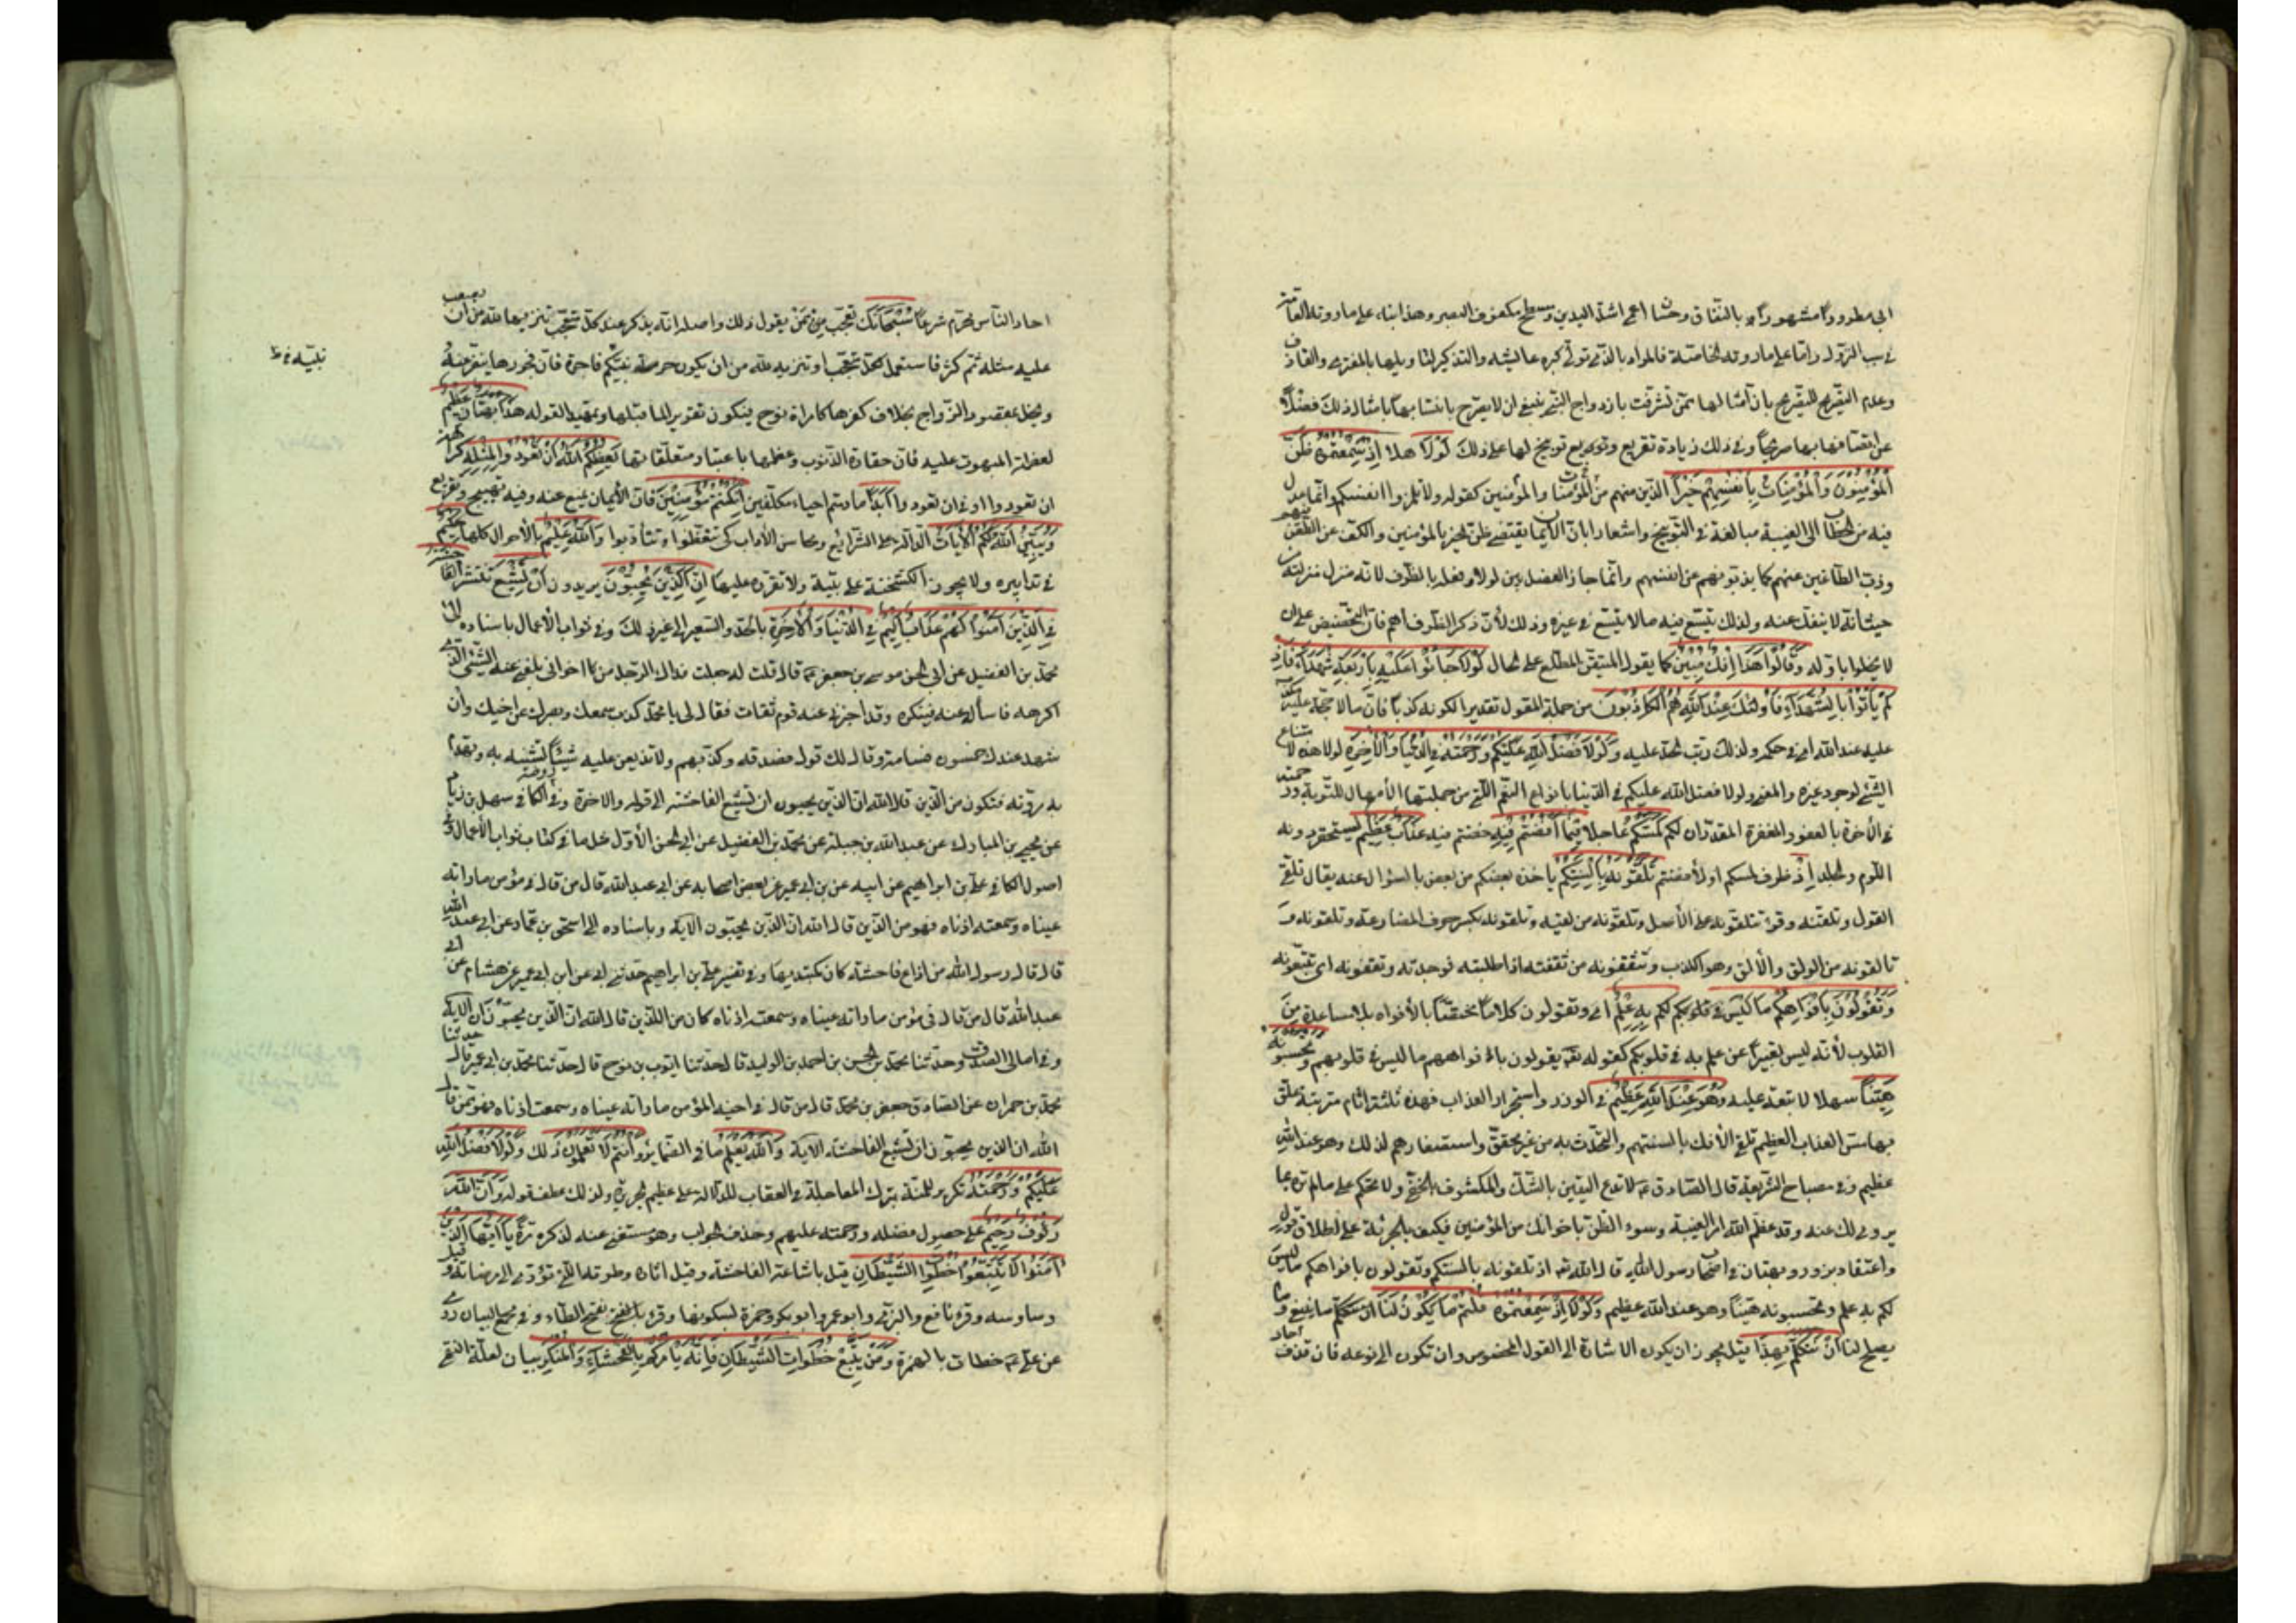 ابي مطرودا مشهورا بالنفاق وحسّان اعمى اشل اليدين ومسطح مكفوف البصر وهذا بناء على ما روته العامّة
في سبب النزول وامّا على ما روته الخاصّة فالمراد بالذي تولّى كبره عايشه والتذكير لتأويلها بالمفترى والقاذف
وعدم التصريح للتصريح بانّ امثالها ممّن تشرّفت بازدواج النبي ينبغي ان لا يصرّح بانتسابها بامثال ذلك فضلاً
عن اتصافها بها صريحاً وفي ذلك زيادة تقريع وتوبيخ لها على ذلك لَوْلَا هلا إِذْ سَمِعْتُمُوهُ ظَنَّ
الْمُؤْمِنُونَ وَالْمُؤْمِنَاتُ بِأَنْفُسِهِمْ خَيْرًا الذين منهم من المؤمنات والمؤمنين كقوله ولا تلمزوا انفسكم وانّما عدل
فيه من الخطاب الى الغيبة مبالغة في التوبيخ واشعارا بانّ الايمان يقتضي ظنّ الخير بالمؤمنين والكفّ عن الطعن فيهم
وذبّ الطاعنين عنهم كما يذبّونهم عن انفسهم وانّما جاز الفصل بين لولا وفعله بالظرف لانّه منزل منزلته من
حيث انّه لا ينفكّ عنه ولذلك يتّسع فيه ما لا يتّسع في غيره وذلك لأنّ ذكر الظرف اهم فانّ التحضيض على ان
لا يخلوا باوّله وَقَالُوا هَذَا إِفْكٌ مُبِينٌ كما يقول المتيقّن المطلع على الحال لَوْلَا جَاءُوا عَلَيْهِ بِأَرْبَعَةِ شُهَدَاءَ فَإِذْ
لَمْ يَأْتُوا بِالشُّهَدَاءِ فَأُولَئِكَ عِنْدَ اللَّهِ هُمُ الْكَاذِبُونَ من جملة المقول تقديرا لكونه كذباً فانّ ما لا حجّة عليه
عليه عند الله اي في حكمه ولذلك رتب الحد عليه وَلَوْلَا فَضْلُ اللَّهِ عَلَيْكُمْ وَرَحْمَتُهُ فِي الدُّنْيَا وَالْآخِرَةِ لولا هذه لامتناع
الشئ لوجود غيره والمعنى ولولا فضل الله عليكم في الدنيا بانواع النعم التي من جملتها الأمهال للتوبة ورحمته
في الآخرة بالعفو والمغفرة المقدران لكم لَمَسَّكُمْ عاجلا فِيمَا أَفَضْتُمْ فِيهِ خضتم فيه عَذَابٌ عَظِيمٌ يستحقر دونه
اللوم والجلد إِذْ ظرف لمسكم او لأفضتم تَلَقَّوْنَهُ بِأَلْسِنَتِكُمْ ياخذه بعضكم من بعض بالسؤال عنه يقال تلقّى
القول وتلقنه وقرئ تتلقونه على الأصل وتلقونه من لقيه وتلقونه بكسر حرف المضارعة وتلقونه و
تالقونه من الولق والألق وهو الكذب وتثقفونه من ثقفته اذا طلبته فوجدته وتقفونه اي تتبعونه
وَتَقُولُونَ بِأَفْوَاهِكُمْ مَا لَيْسَ في قلوبكم لَكُمْ بِهِ عِلْمٌ اي وتقولون كلاماً مختصّاً بالأفواه بلا مساعدة مِن
القلوب لأنّه ليس تعبيراً عن علم به في قلوبكم كقوله تعم يقولون بافواههم ما ليس في قلوبهم وَتَحْسَبُونَهُ
هَيِّنًا سهلا لا تبعة عليه وَهُوَ عِنْدَ اللَّهِ عَظِيمٌ في الوزر واستجرار العذاب فهذه ثلثة اثام مترتبة علق
بها مسّ العذاب العظيم تلقي الأفك بالسنتهم والتحدّث به من غير تحقق واستصغارهم لذلك وهو عند الله
عظيم وفي مصباح الشريعة قال الصادق ع لا تدع اليقين بالشك والمكشوف بالخفي ولا تحكم على ما لم تره بما
يروى لك عنه وقد عظم الله امر الغيبة وسوء الظن باخوانك من المؤمنين فكيف بالجرئة على اطلاق قول
واعتقاد بزور وبهتان في اصحاب رسول الله قال الله تعم اذ تلقونه بالسنتكم وتقولون بافواهكم ما ليس
لكم به علم وتحسبونه هيّناً وهو عند الله عظيم وَلَوْلَا إِذْ سَمِعْتُمُوهُ قُلْتُمْ مَا يَكُونُ لَنَا ما ينبغي وما
يصلح لنا أَنْ نَتَكَلَّمَ بِهَذَا قيل يجوز ان يكون الاشارة الى القول المخصوص وان تكون الى نوعه فان قذف احاد
احاد الناس محرّم شرعاً سُبْحَانَكَ تعجّب من يقول ذلك واصله انّه يذكر عند كل تعجّب تنزيها لله من ان يصعب
نبيّه خ ظ
عليه مثله ثم كثر فاستعمل لكلّ تعجّب او تنزيه لله من ان يكون حرمة نبيّكم فاجرة فانّ فجورها ينفر عنه
ويخلّ بمقصود الزواج بخلاف كفرها كامراة نوح فيكون تقريرا لما قبلها وتمهيدا لقوله هَذَا بُهْتَانٌ عَظِيمٌ
لعظمة المبهوت عليه فانّ حقارة الذنوب وعظمها باعتبار متعلّقاتها يَعِظُكُمُ اللَّهُ أَنْ تَعُودُوا لِمِثْلِهِ كراهة
ان تعودوا او في ان تعودوا أَبَدًا ما دمتم احياء مكلّفين إِنْ كُنْتُمْ مُؤْمِنِينَ فانّ الأيمان يمنع عنه وفيه تهييج وتقريع
وَيُبَيِّنُ اللَّهُ لَكُمُ الْآيَاتِ الدالّة على الشرايع ومحاسن الآداب كي تتعّظوا وتتأدبوا وَاللَّهُ عَلِيمٌ بالأحوال كلها حَكِيمٌ
في تدابيره ولا يجوز الكشخنة على نبيه ولا تقرّه عليها إِنَّ الَّذِينَ يُحِبُّونَ يريدون أَنْ تَشِيعَ تنتشر الْفَاحِشَةُ
فِي الَّذِينَ آمَنُوا لَهُمْ عَذَابٌ أَلِيمٌ فِي الدُّنْيَا وَالْآخِرَةِ بالحدّ والسعير الى غير ذلك وفي ثواب الأعمال باسناده الى
محمّد بن الفضيل عن ابي الحسن موسى بن جعفر ع قال قلت له جعلت فداك الرجل من اخواني بلغني عنه الشئ الذي
اكرهه فاسأله عنه فينكره وقد اخبرني عنه قوم ثقات فقال لي يا محمّد كذب سمعك وبصرك عن اخيك وان
شهد عندك خمسون قسامة وقال لك قول فصدقه وكذّبهم ولا تذيعن عليه شيئاً تشينه به وتهدم
به مروّته فتكون من الذين قال الله ان الذين يحبون ان تشيع الفاحشة الى قوله والاخرة وفي روضة الكافي سهل بن زياد
عن يحيى بن المبارك عن عبد الله بن جبلة عن محمّد بن الفضيل عن ابي الحسن الأول مثل ما في كتاب ثواب الأعمال وفي
اصول الكافي علي بن ابراهيم عن ابيه عن بن ابي عمير عن بعض اصحابه عن ابي عبد الله قال من قال في مؤمن ما راته
عيناه وسمعته اذناه فهو من الذين قال الله ان الذين يحبّون الآية وباسناده الى اسحق بن عمّار عن ابي عبد الله
قال قال رسول الله من اذاع فاحشة كان كمبتديها وفي تفسير علي بن ابراهيم حدثني ابي عن ابن ابي عمير عن هشام عن ابي
عبد الله قال من قال في مؤمن ما راته عيناه وسمعته اذناه كان من الذين قال الله ان الذين يحبّون ان الآية
وفي امالي الصدوق حدّثنا محمّد بن الحسن بن احمد بن الوليد قال حدّثنا ايّوب بن نوح قال حدّثنا محمّد بن ابي عمير قال حدثنا
محمّد بن حمران عن الصادق جعفر بن محمّد قال من قال في اخيه المؤمن ما راته عيناه وسمعته اذناه فهو ممّن قال
الله ان الذين يحبّون ان تشيع الفاحشة الآية وَاللَّهُ يَعْلَمُ ما في الضماير وَأَنْتُمْ لَا تَعْلَمُونَ ذلك وَلَوْلَا فَضْلُ اللَّهِ
عَلَيْكُمْ وَرَحْمَتُهُ تكرير للمنّة بترك المعاجلة في العقاب للدلالة على عظيم الجريرة ولذلك عطف قوله وَأَنَّ اللَّهَ
رَءُوفٌ رَحِيمٌ على حصول فضله ورحمته عليهم وحذف الجواب وهو مستغنى عنه لذكره مرّة يَا أَيُّهَا الَّذِينَ
آمَنُوا لَا تَتَّبِعُوا خُطُوَاتِ الشَّيْطَانِ قيل باشاعة الفاحشة وقيل اثاره وطرقه التي تؤدى الى مرضاته وقيل
وساوسه وقرء نافع والبزي وابو عمرو وابو بكر وحمزة بسكونها وقرء بالفتح بفتح الطاء وفي مجمع البيان روى
عن علي ع خطات بالهمزة وَمَنْ يَتَّبِعْ خُطُوَاتِ الشَّيْطَانِ فَإِنَّهُ يَأْمُرُ بِالْفَحْشَاءِ وَالْمُنْكَرِ بيان لعلّة النهى